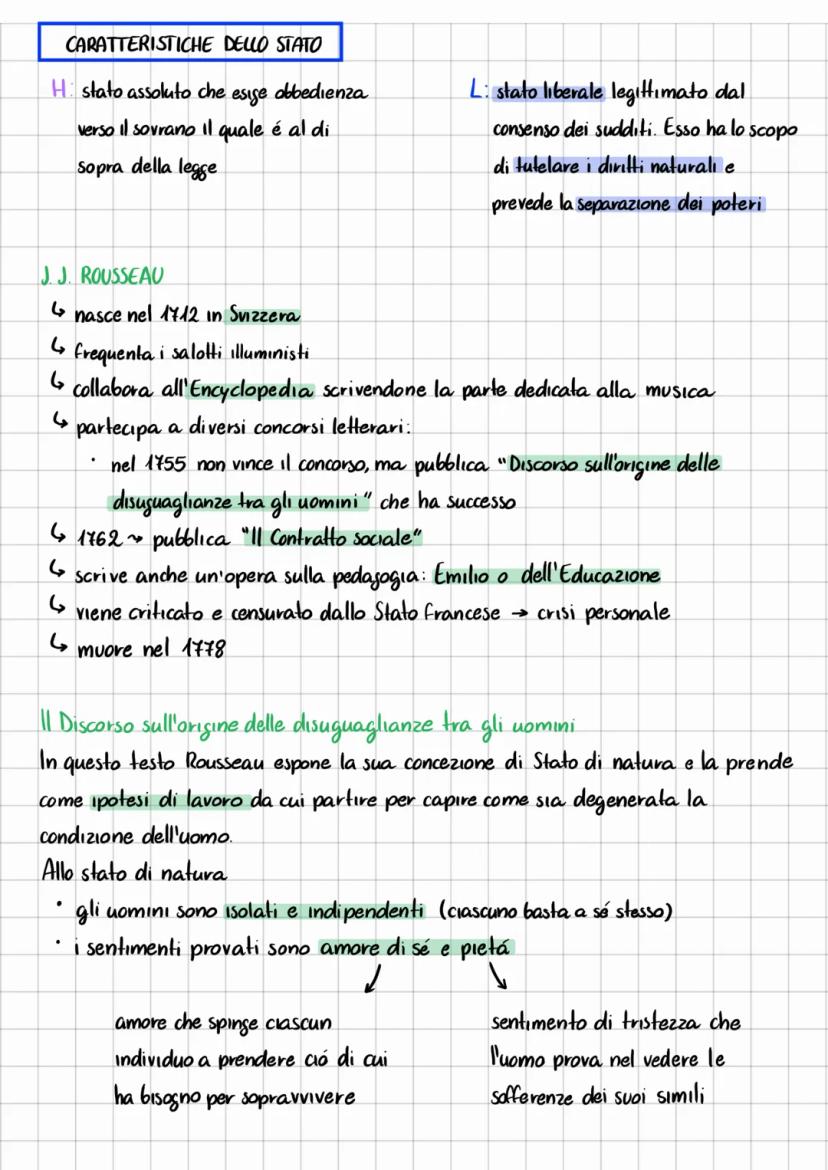 CARATTERISTICHE DELLO STATO
H: stato assoluto che esige obbedienza
verso il sovrano il quale é al di
sopra della legge
L: stato liberale legittimato dal
consenso dei sudditi. Esso ha lo scopo
di tutelare i diritti naturali e
prevede la separazione dei poteri
J. J. ROUSSEAU
↳ nasce nel 1712 in Svizzera
↳ frequenta i salotti illuministi
↳ collabora all'Encyclopedia scrivendone la parte dedicata alla musica
↳ partecipa a diversi concorsi letterari:
· nel 1755 non vince il concorso, ma pubblica "Discorso sull'origine delle
disuguaglianze tra gli uomini" che ha successo
↳ 1762 ~> pubblica "Il Contratto sociale"
↳ scrive anche un'opera sulla pedagogia: Emilio o dell'Educazione
↳ viene criticato e censurato dallo Stato francese → crisi personale
↳ muore nel 1778
Il Discorso sull'origine delle disuguaglianze tra gli uomini
In questo testo Rousseau espone la sua concezione di Stato di natura e la prende
come ipotesi di lavoro da cui partire per capire come sia degenerata la
condizione dell'uomo.
Allo stato di natura
· gli uomini sono isolati e indipendenti (ciascuno basta a sé stesso)
· i sentimenti provati sono amore di sé e pietá
amore che spinge ciascun
individuo a prendere ció di cui
ha bisogno per sopravvivere
sentimento di tristezza che
l'uomo prova nel vedere le
sofferenze dei suoi simili